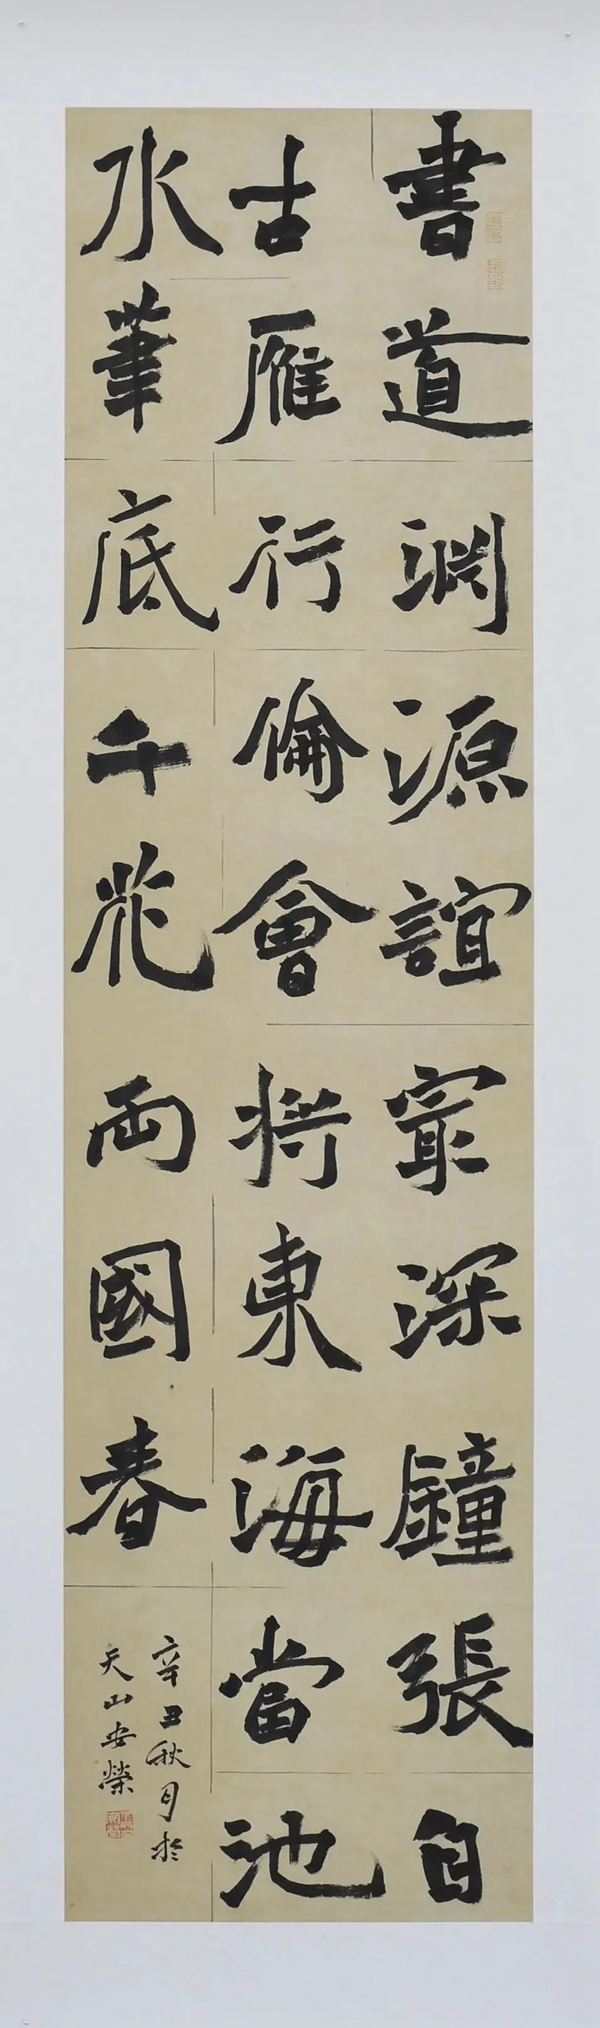 書道淵源誼最深鐘張自
古雁行倫會将東海當池
水筆底千花兩國春
辛丑秋月於
天山安榮